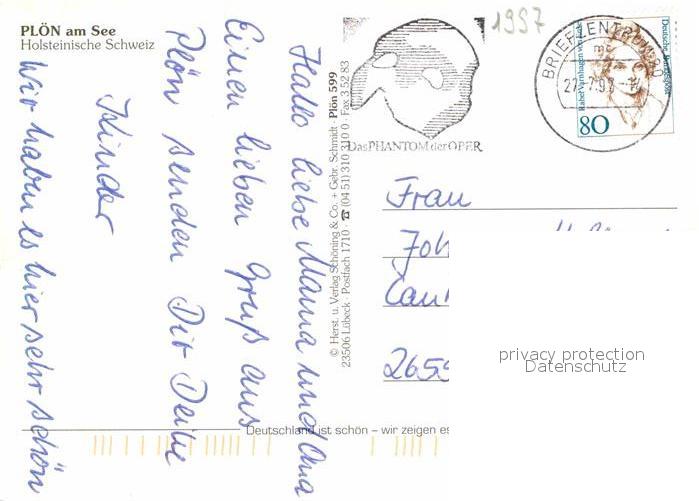 PLÖN am See
Holsteinische Schweiz
Hallo liebe Mama und Oma
Einen lieben Gruß aus
Plön senden Dir Deine
Kinder
Wir haben es hier sehr schön
© Herst. u. Verlag Schöning & Co. + Gebr. Schmidt · Plön 599
23506 Lübeck · Postfach 1710 · ☎ (04 51) 310 310 0 · Fax 3 52 83
Das PHANTOM der OPER
1997
BRIEFZENTRUM
Rahel Varnhagen von Ense
Deutsche Bundespost
80
Frau
Joh
2659
privacy protection
Datenschutz
Deutschland ist schön – wir zeigen es